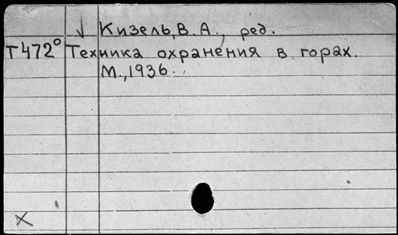 Кизель, В. А., ред.
Т472° Техника охранения в горах.
М., 1936.